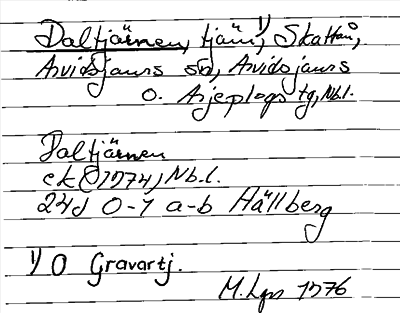 Daltjärnen, tjärn¹), Skattau,
Arvidsjaurs sn, Arvidsjaurs
o. Arjeplogs tg, Nb.l.
Daltjärnen
ek (1974) Nb.l.
24J 0-1 a-b Hällberg
1) O Gravartj.
M.Lgn 1976